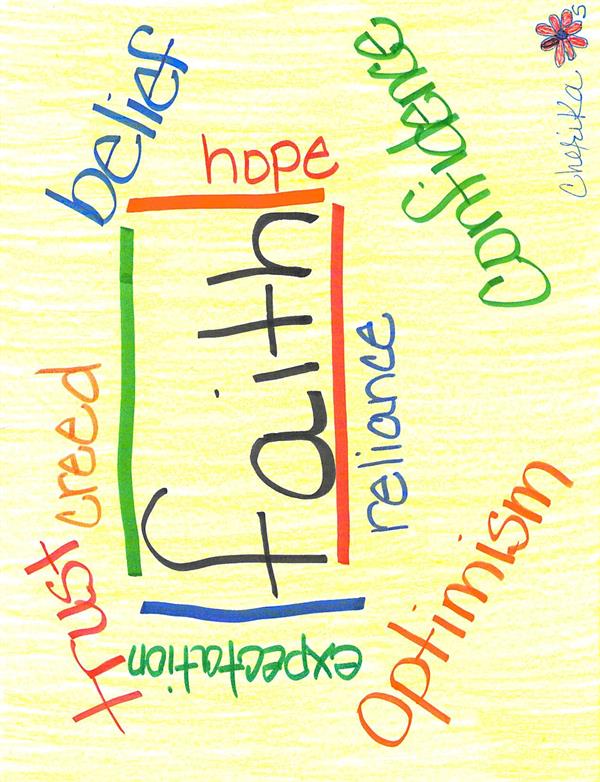 trust
creed
belief
expectation
faith
hope
reliance
Optimism
Confidence
Cherika